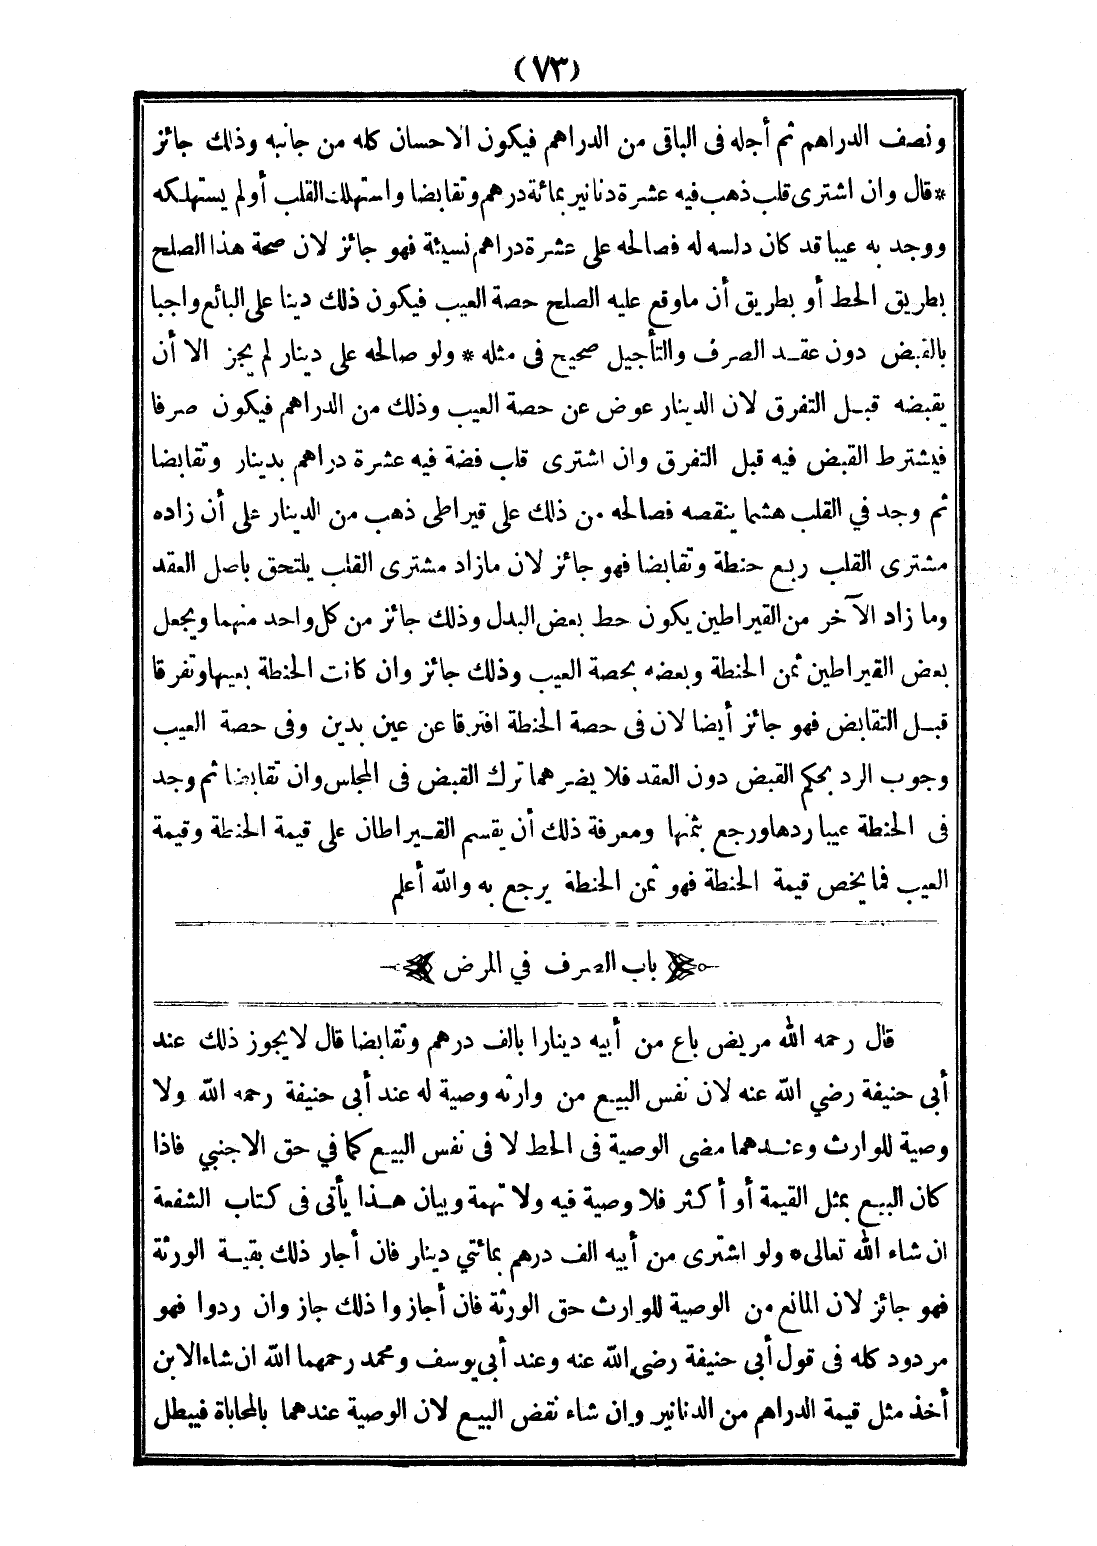 (٧٣)
ونصف الدراهم ثم أجله فى الباقى من الدراهم فيكون الاحسان كله من جانبه وذلك جائز
* قال وان اشترى قلب ذهب فيه عشرة دنانير بمائة درهم وتقابضا واستهلك القلب أو لم يستهلكه
ووجد به عيبا قد كان دلسه له فصالحه على عشرة دراهم نسيئة فهو جائز لان صحة هذا الصلح
بطريق الحط أو بطريق أن ماوقع عليه الصلح حصة العيب فيكون ذلك دينا على البائع واجبا
بالقبض دون عقد الصرف والتأجيل صحيح فى مثله * ولو صالحه على دينار لم يجز الا أن
يقبضه قبل التفرق لان الدينار عوض عن حصة العيب وذلك من الدراهم فيكون صرفا
فيشترط القبض فيه قبل التفرق وان اشترى قلب فضة فيه عشرة دراهم بدينار وتقابضا
ثم وجد في القلب هشما ينقصه فصالحه من ذلك على قيراطى ذهب من الدينار على أن زاده
مشترى القلب ربع حنطة وتقابضا فهو جائز لان مازاد مشترى القلب يلتحق باصل العقد
وما زاد الآخر من القيراطين يكون حط بعض البدل وذلك جائز من كل واحد منهما ويجعل
بعض القيراطين ثمن الحنطة وبعضه بحصة العيب وذلك جائز وان كانت الحنطة بعينها وتفرقا
قبل التقابض فهو جائز أيضا لان فى حصة الحنطة افترقا عن عين بدين وفى حصة العيب
وجوب الرد بحكم القبض دون العقد فلا يضرهما ترك القبض فى المجلس وان تقابضا ثم وجد
فى الحنطة عيبا ردها ورجع بثمنها ومعرفة ذلك أن يقسم القيراطان على قيمة الحنطة وقيمة
العيب فما يخص قيمة الحنطة فهو ثمن الحنطة يرجع به والله أعلم
باب الصرف في المرض
قال رحمه الله مريض باع من أبيه دينارا بالف درهم وتقابضا قال لا يجوز ذلك عند
أبى حنيفة رضي الله عنه لان نفس البيع من وارثه وصية له عند أبى حنيفة رحمه الله ولا
وصية للوارث وعندهما مضى الوصية فى الحط لا فى نفس البيع كما في حق الاجنبي فاذا
كان البيع بمثل القيمة أو أكثر فلا وصية فيه ولا تهمة وبيان هذا يأتى فى كتاب الشفعة
ان شاء الله تعالى * ولو اشترى من أبيه الف درهم بمائتي دينار فان أجار ذلك بقية الورثة
فهو جائز لان المانع من الوصية للوارث حق الورثة فان أجازوا ذلك جاز وان ردوا فهو
مردود كله فى قول أبى حنيفة رضى الله عنه وعند أبى يوسف ومحمد رحمهما الله ان شاء الابن
أخذ مثل قيمة الدراهم من الدنانير وان شاء نقض البيع لان الوصية عندهما بالمحاباة فيبطل